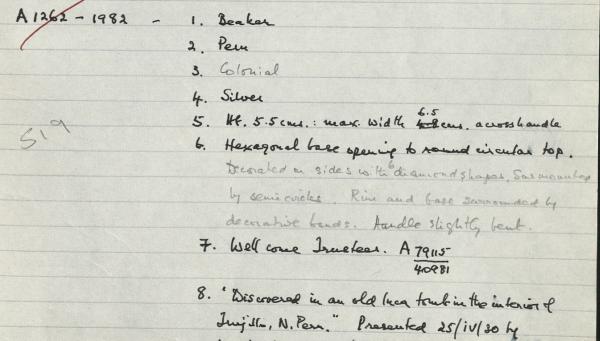 A1262-1982 - 1. Beaker
2. Peru
3. Colonial
4. Silver
5. Ht. 5.5 cms. : max. width 6.5 cms. across handle
6. Hexagonal base opening to round circular top.
Decorated on sides with 6 diamond shapes, surmounted
by semicircles. Rim and base surrounded by
decorative bands. Handle slightly bent.
S19
7. Wellcome Trustees. A 79115
40981
8. "Discovered in an old Inca tomb in the interior of
Trujillo, N. Peru." Presented 25/iv/30 by